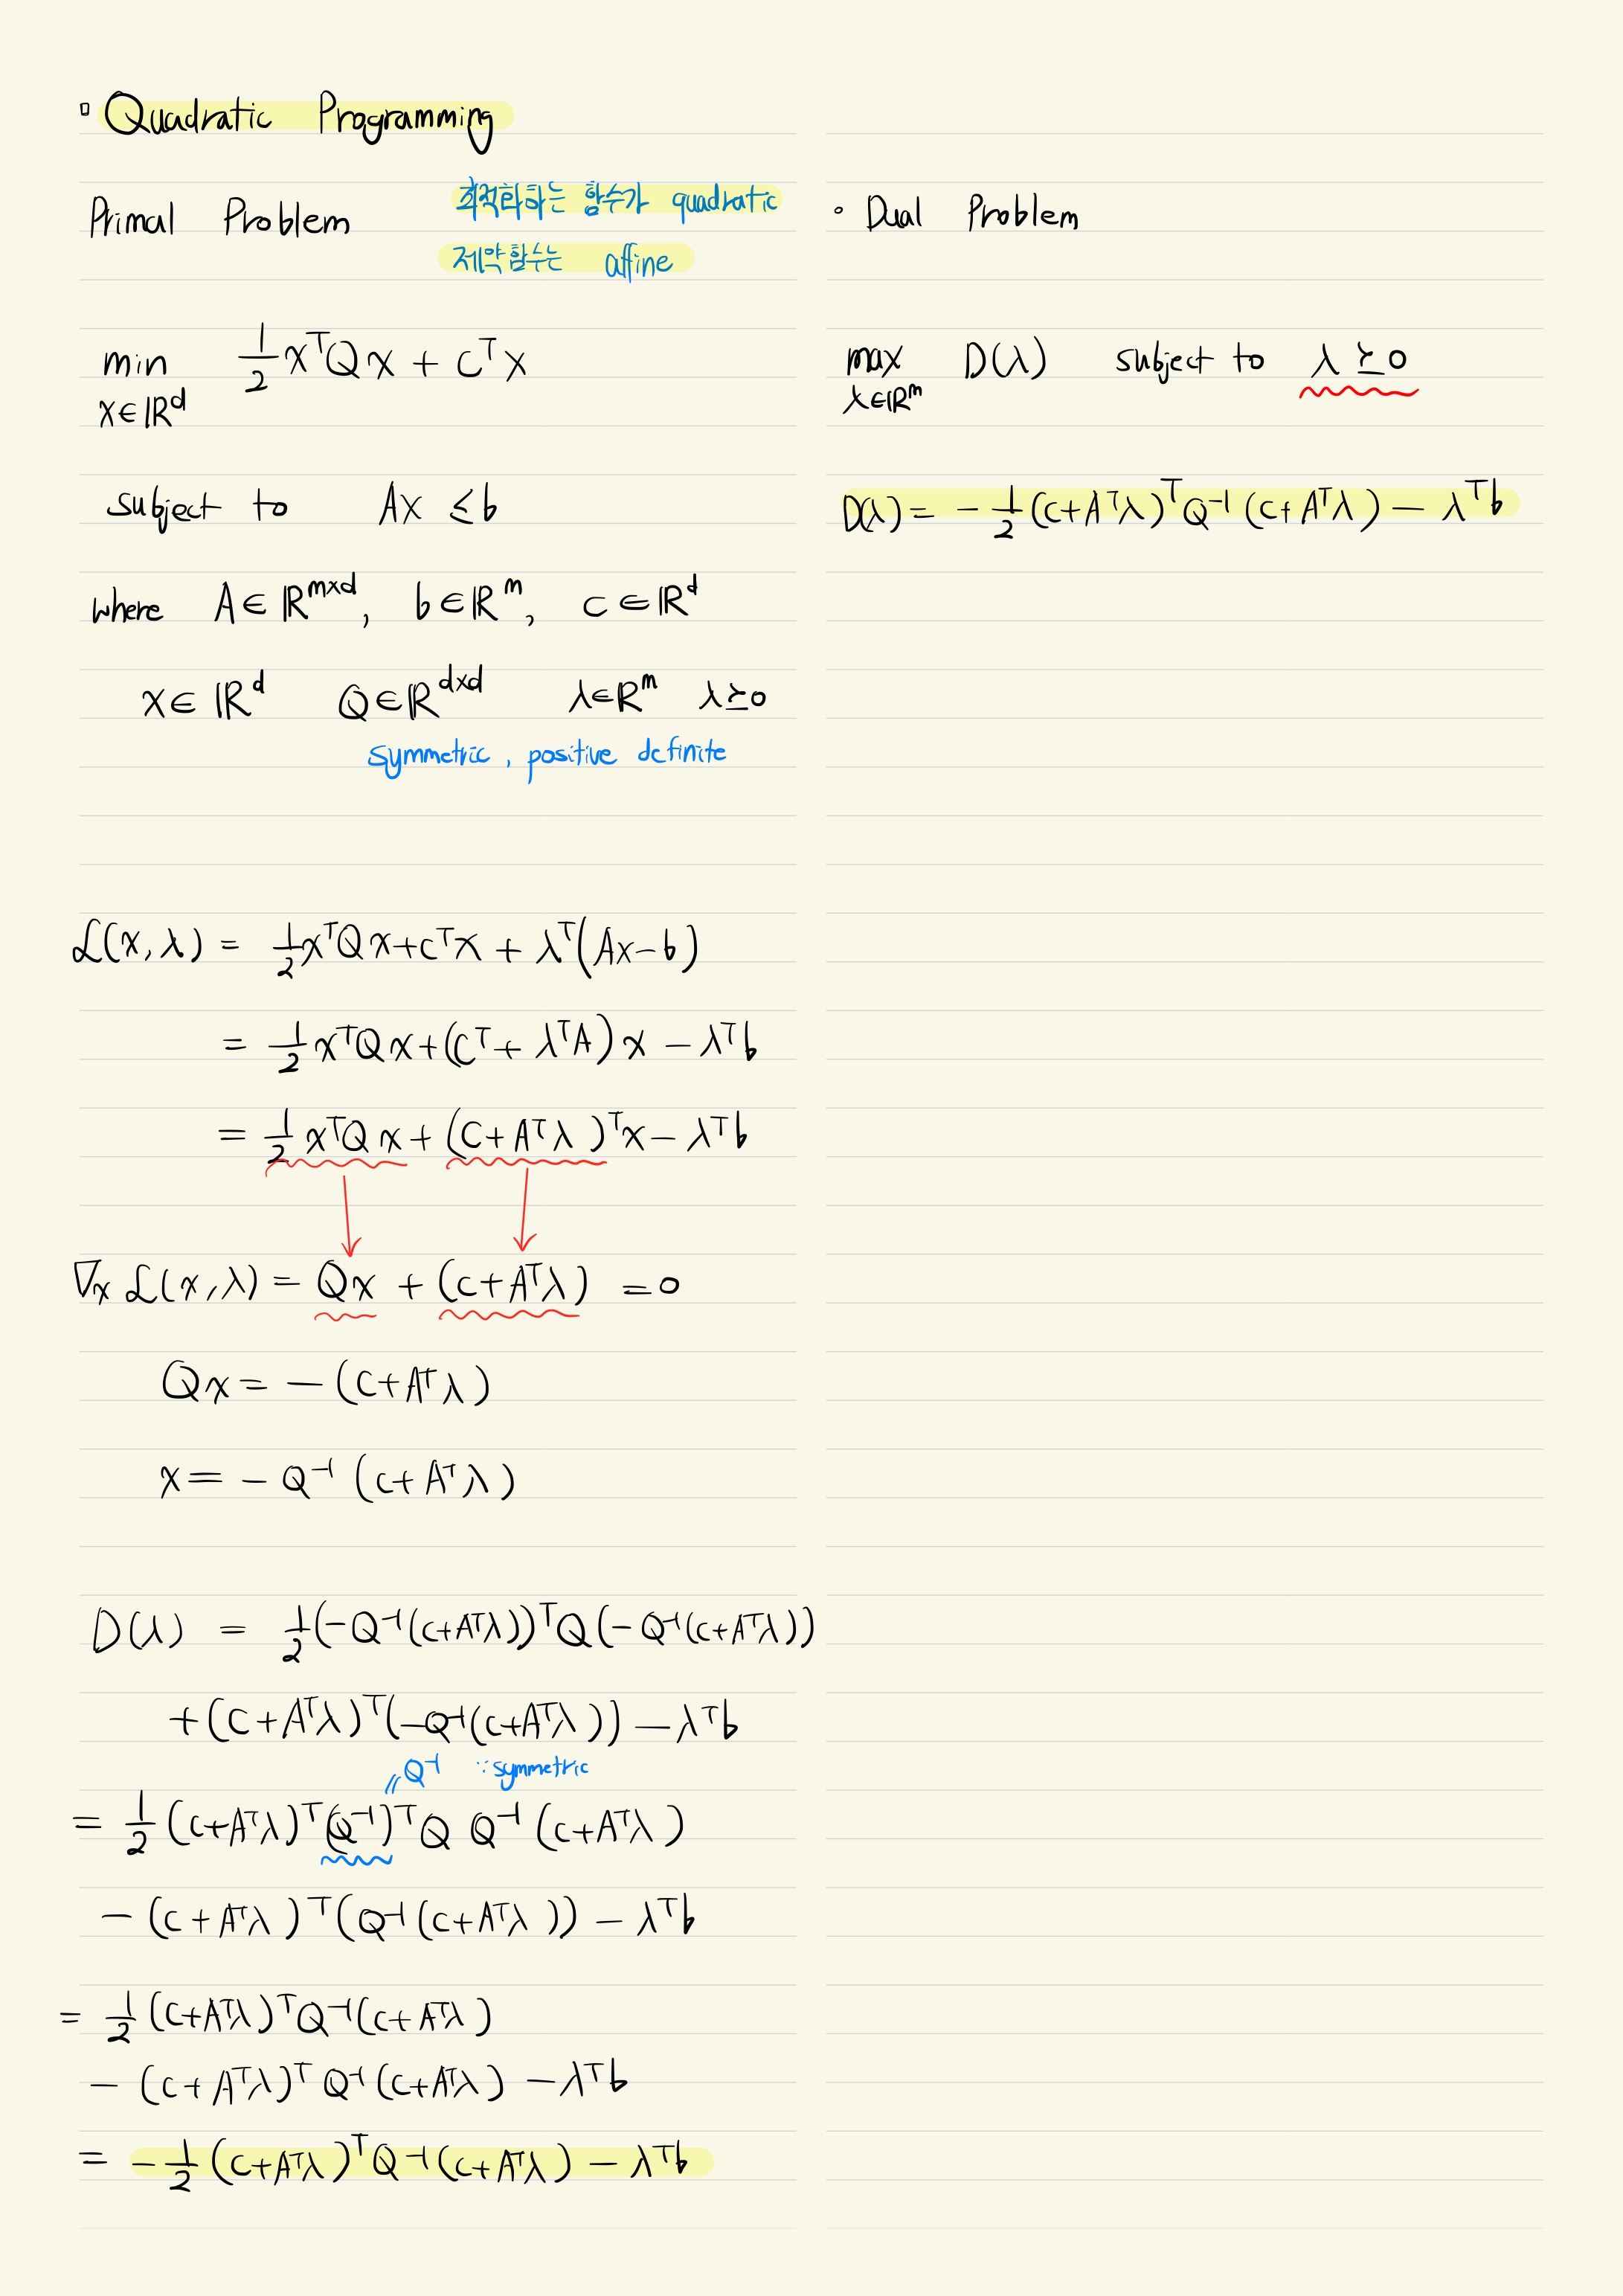 ▫ Quadratic Programming
Primal Problem
최적화하는 함수가 quadratic
제약함수는 affine
min 1/2 xᵀQx + cᵀx
x∈ℝᵈ
subject to Ax ≤ b
where A∈ℝᵐˣᵈ, b∈ℝᵐ, c∈ℝᵈ
x∈ℝᵈ Q∈ℝᵈˣᵈ λ∈ℝᵐ λ⪰0
symmetric, positive definite
ℒ(x,λ) = 1/2 xᵀQx + cᵀx + λᵀ(Ax−b)
= 1/2 xᵀQx + (cᵀ + λᵀA)x − λᵀb
= 1/2 xᵀQx + (c + Aᵀλ)ᵀx − λᵀb
∇ₓ ℒ(x,λ) = Qx + (c+Aᵀλ) = 0
Qx = −(c+Aᵀλ)
x = −Q⁻¹(c+Aᵀλ)
D(λ) = 1/2 (−Q⁻¹(c+Aᵀλ))ᵀQ(−Q⁻¹(c+Aᵀλ))
+(c+Aᵀλ)ᵀ(−Q⁻¹(c+Aᵀλ)) − λᵀb
〃Q⁻¹ ∵symmetric
= 1/2 (c+Aᵀλ)ᵀ(Q⁻¹)ᵀQ Q⁻¹(c+Aᵀλ)
− (c+Aᵀλ)ᵀ(Q⁻¹(c+Aᵀλ)) − λᵀb
= 1/2 (c+Aᵀλ)ᵀQ⁻¹(c+Aᵀλ)
− (c+Aᵀλ)ᵀQ⁻¹(c+Aᵀλ) − λᵀb
= −1/2 (c+Aᵀλ)ᵀQ⁻¹(c+Aᵀλ) − λᵀb
∘ Dual Problem
max D(λ) subject to λ⪰0
λ∈ℝᵐ
D(λ) = −1/2 (c+Aᵀλ)ᵀQ⁻¹(c+Aᵀλ) − λᵀb